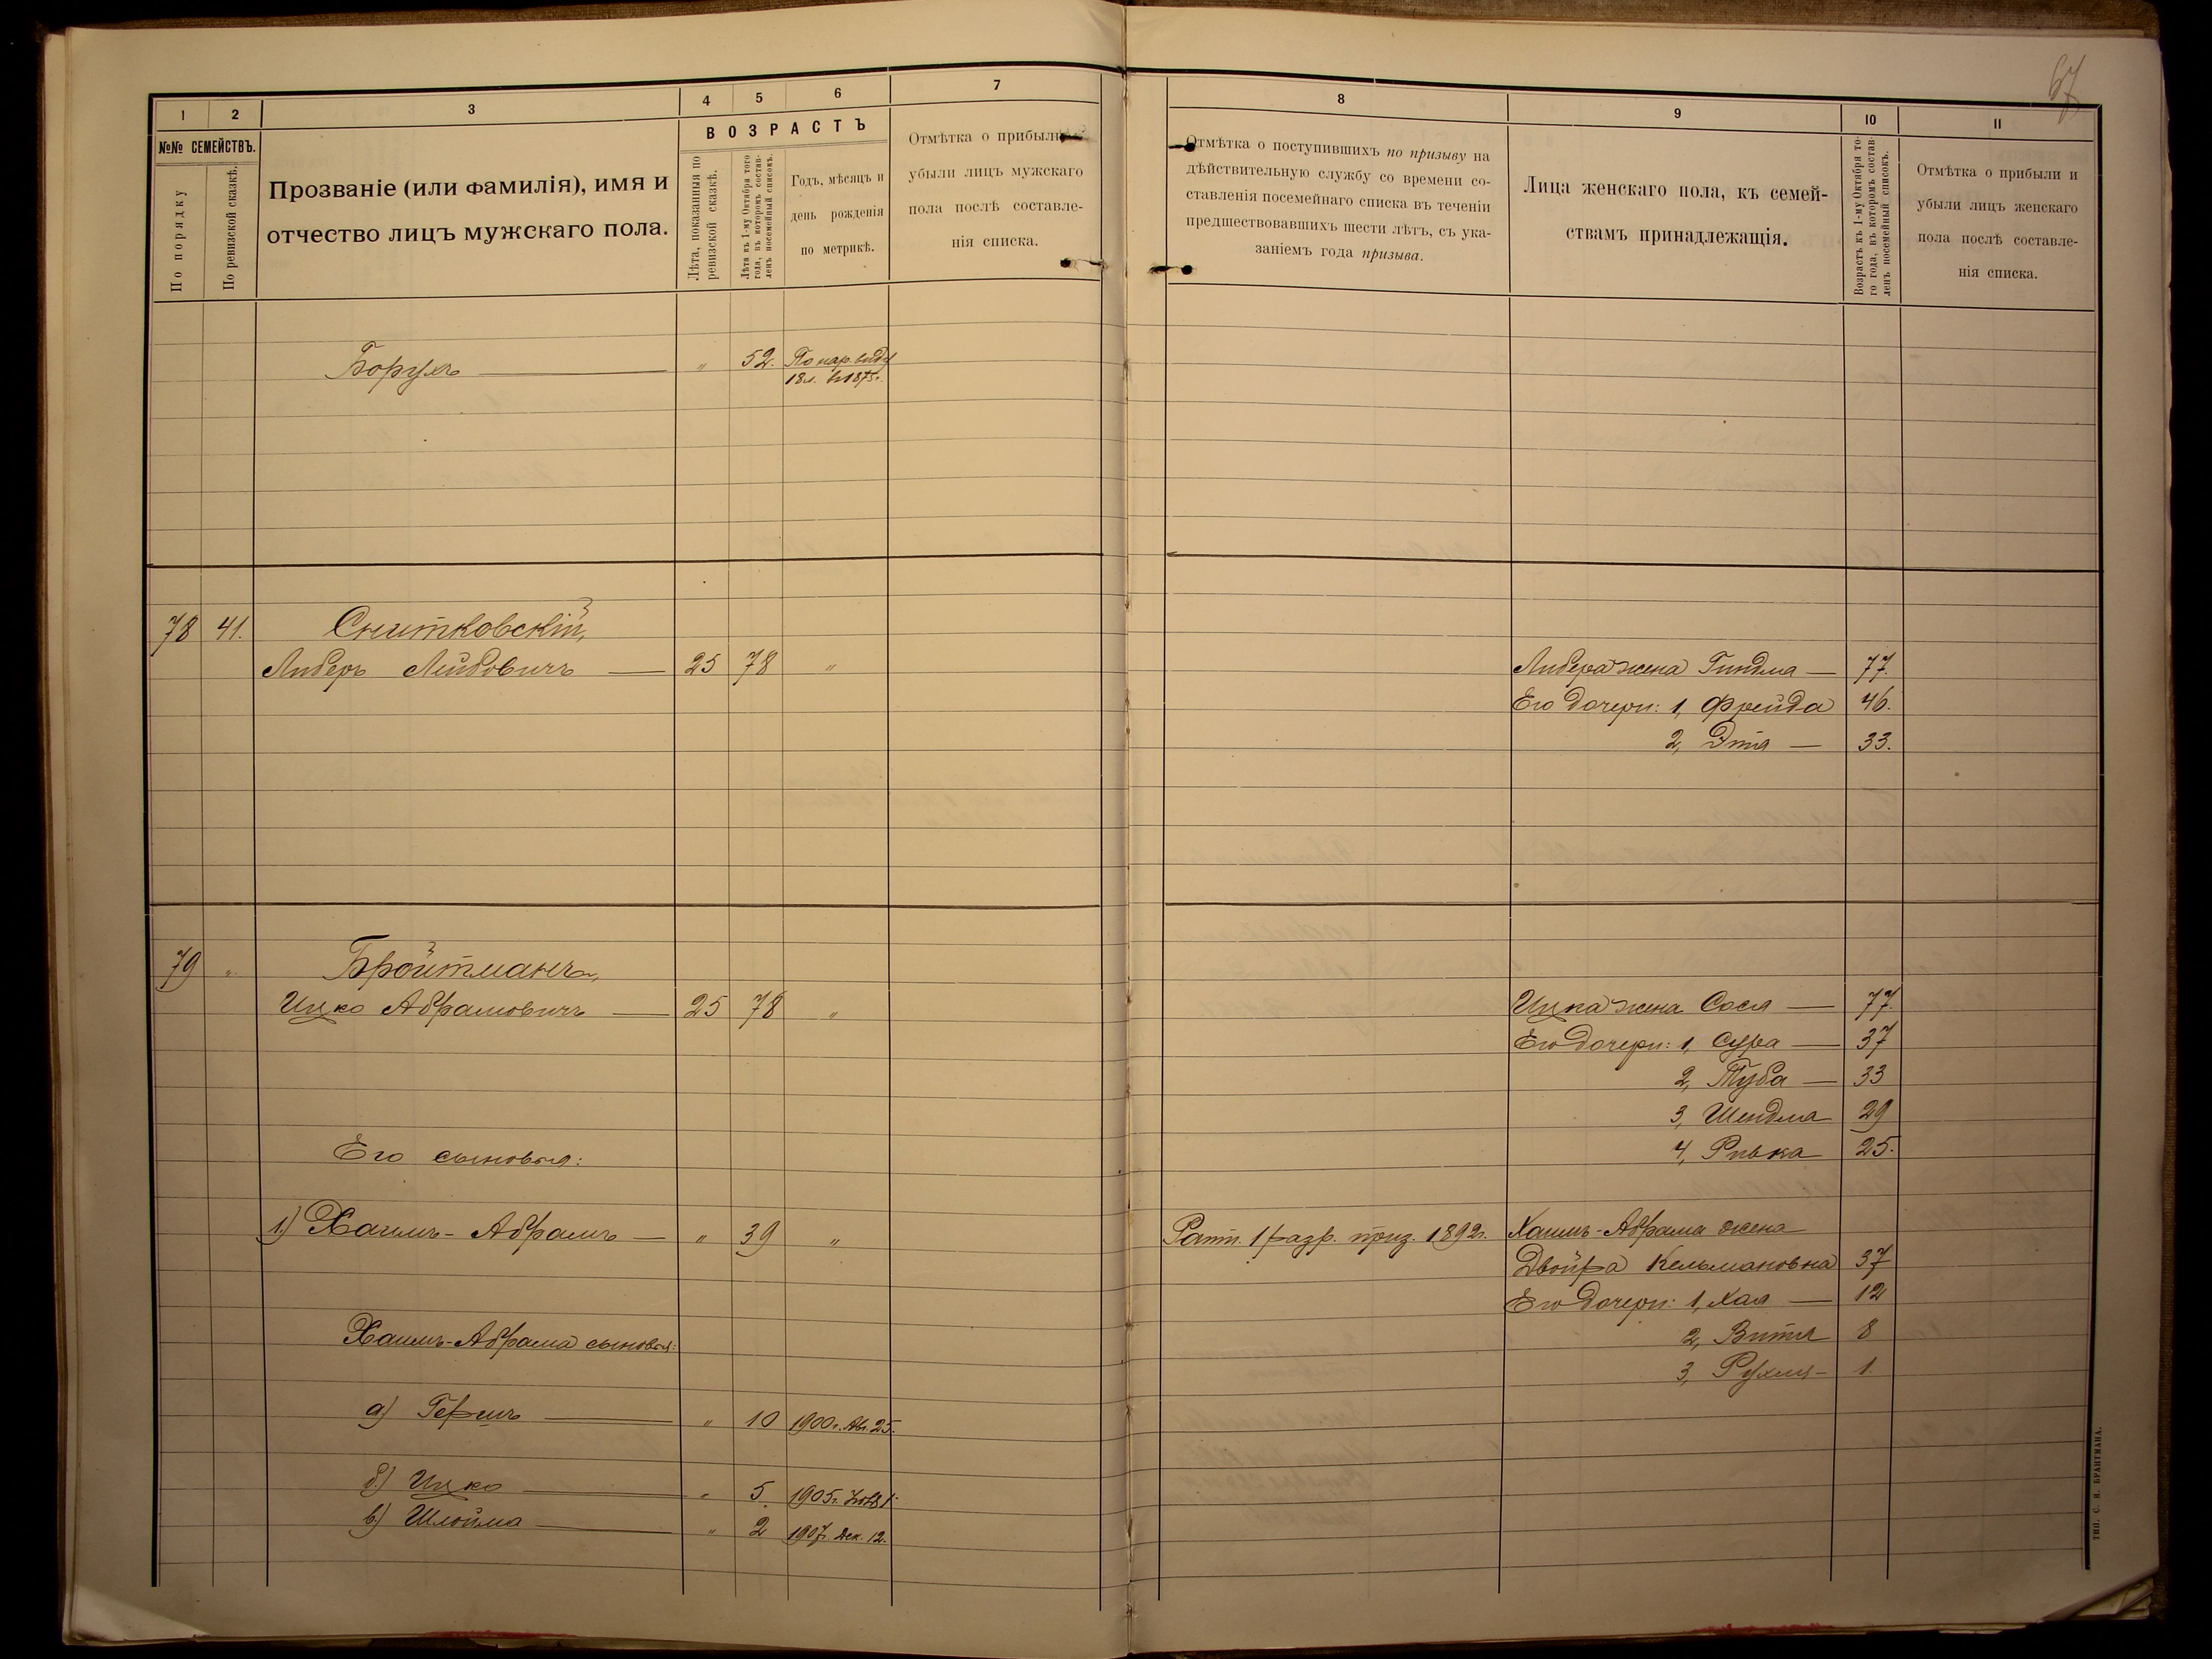 67
1 2 3 4 5 6 7
№№ СЕМЕЙСТВЪ.
По порядку
По ревизской сказкѣ.
Прозваніе (или фамилія), имя и
отчество лицъ мужскаго пола.
ВОЗРАСТЪ
Лѣта, показанныя по
ревизской сказкѣ.
Лѣта къ 1-му Октября того
года, въ которомъ состав-
ленъ посемейный списокъ.
Годъ, мѣсяцъ и
день рожденія
по метрикѣ.
Отмѣтка о прибыли
убыли лицъ мужскаго
пола послѣ составле-
нія списка.
Борухъ — " 52. По нар. виду
18 л. въ 1875 г.
78 41. Снитковскій,
Либеръ Лейбовичъ — 25 78 "
79 " Бройтманъ,
Ицко Абрамовичъ — 25 78 "
Его сыновья:
1.) Хаимъ-Абрамъ — " 39 "
Хаимъ-Абрама сыновья:
а) Гершъ — " 10 1900 г. Авг. 25.
б.) Ицко — " 5. 1905 г.
в.) Шлойма — " 2 1907 г. Дек. 12.
8 9 10 11
Отмѣтка о поступившихъ по призыву на
дѣйствительную службу со времени со-
ставленія посемейнаго списка въ теченіи
предшествовавшихъ шести лѣтъ, съ ука-
заніемъ года призыва.
Лица женскаго пола, къ семей-
ствамъ принадлежащія.
Возрастъ къ 1-му Октября то-
го года, въ которомъ состав-
ленъ посемейный списокъ.
Отмѣтка о прибыли и
убыли лицъ женскаго
пола послѣ составле-
нія списка.
Либера жена Гиндля — 77.
Его дочери: 1, Фрейда 46.
2, Этя — 33.
Ицка жена Сося — 77.
Его дочери: 1, Сура — 37
2, Туба — 33
3, Шендля 29
4, Ривка 25.
Ратн. 1 разр. приз. 1892 г. Хаимъ-Абрама жена
Двойра Кельмановна 37
Его дочери: 1, Хая — 12
2, Витя 8
3, Рухля — 1
ТИП. С. Н. БРАНТМАНА.